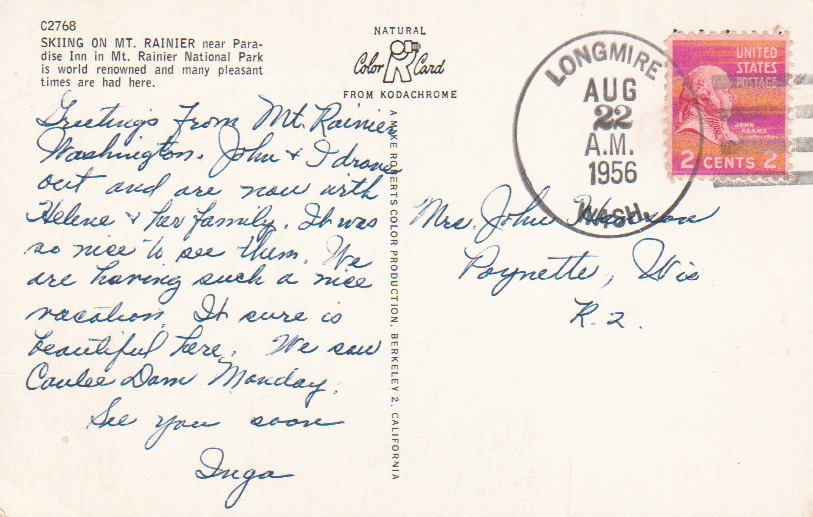 C2768
SKIING ON MT. RAINIER near Para-
dise Inn in Mt. Rainier National Park
is world renowned and many pleasant
times are had here.
NATURAL
Color Card
FROM KODACHROME
Greetings from Mt. Rainier
Washington. John & I drove
out and are now with
Helene & her family. It was
so nice to see them. We
are having such a nice
vacation. It sure is
beautiful here. We saw
Coulee Dam Monday.
See you soon
Inga
A MIKE ROBERTS COLOR PRODUCTION, BERKELEY 2, CALIFORNIA
LONGMIRE
AUG
22
A.M.
1956
WASH.
UNITED
STATES
POSTAGE
JOHN
ADAMS
2 CENTS 2
Mrs. John
Poynette, Wis
R. 2.